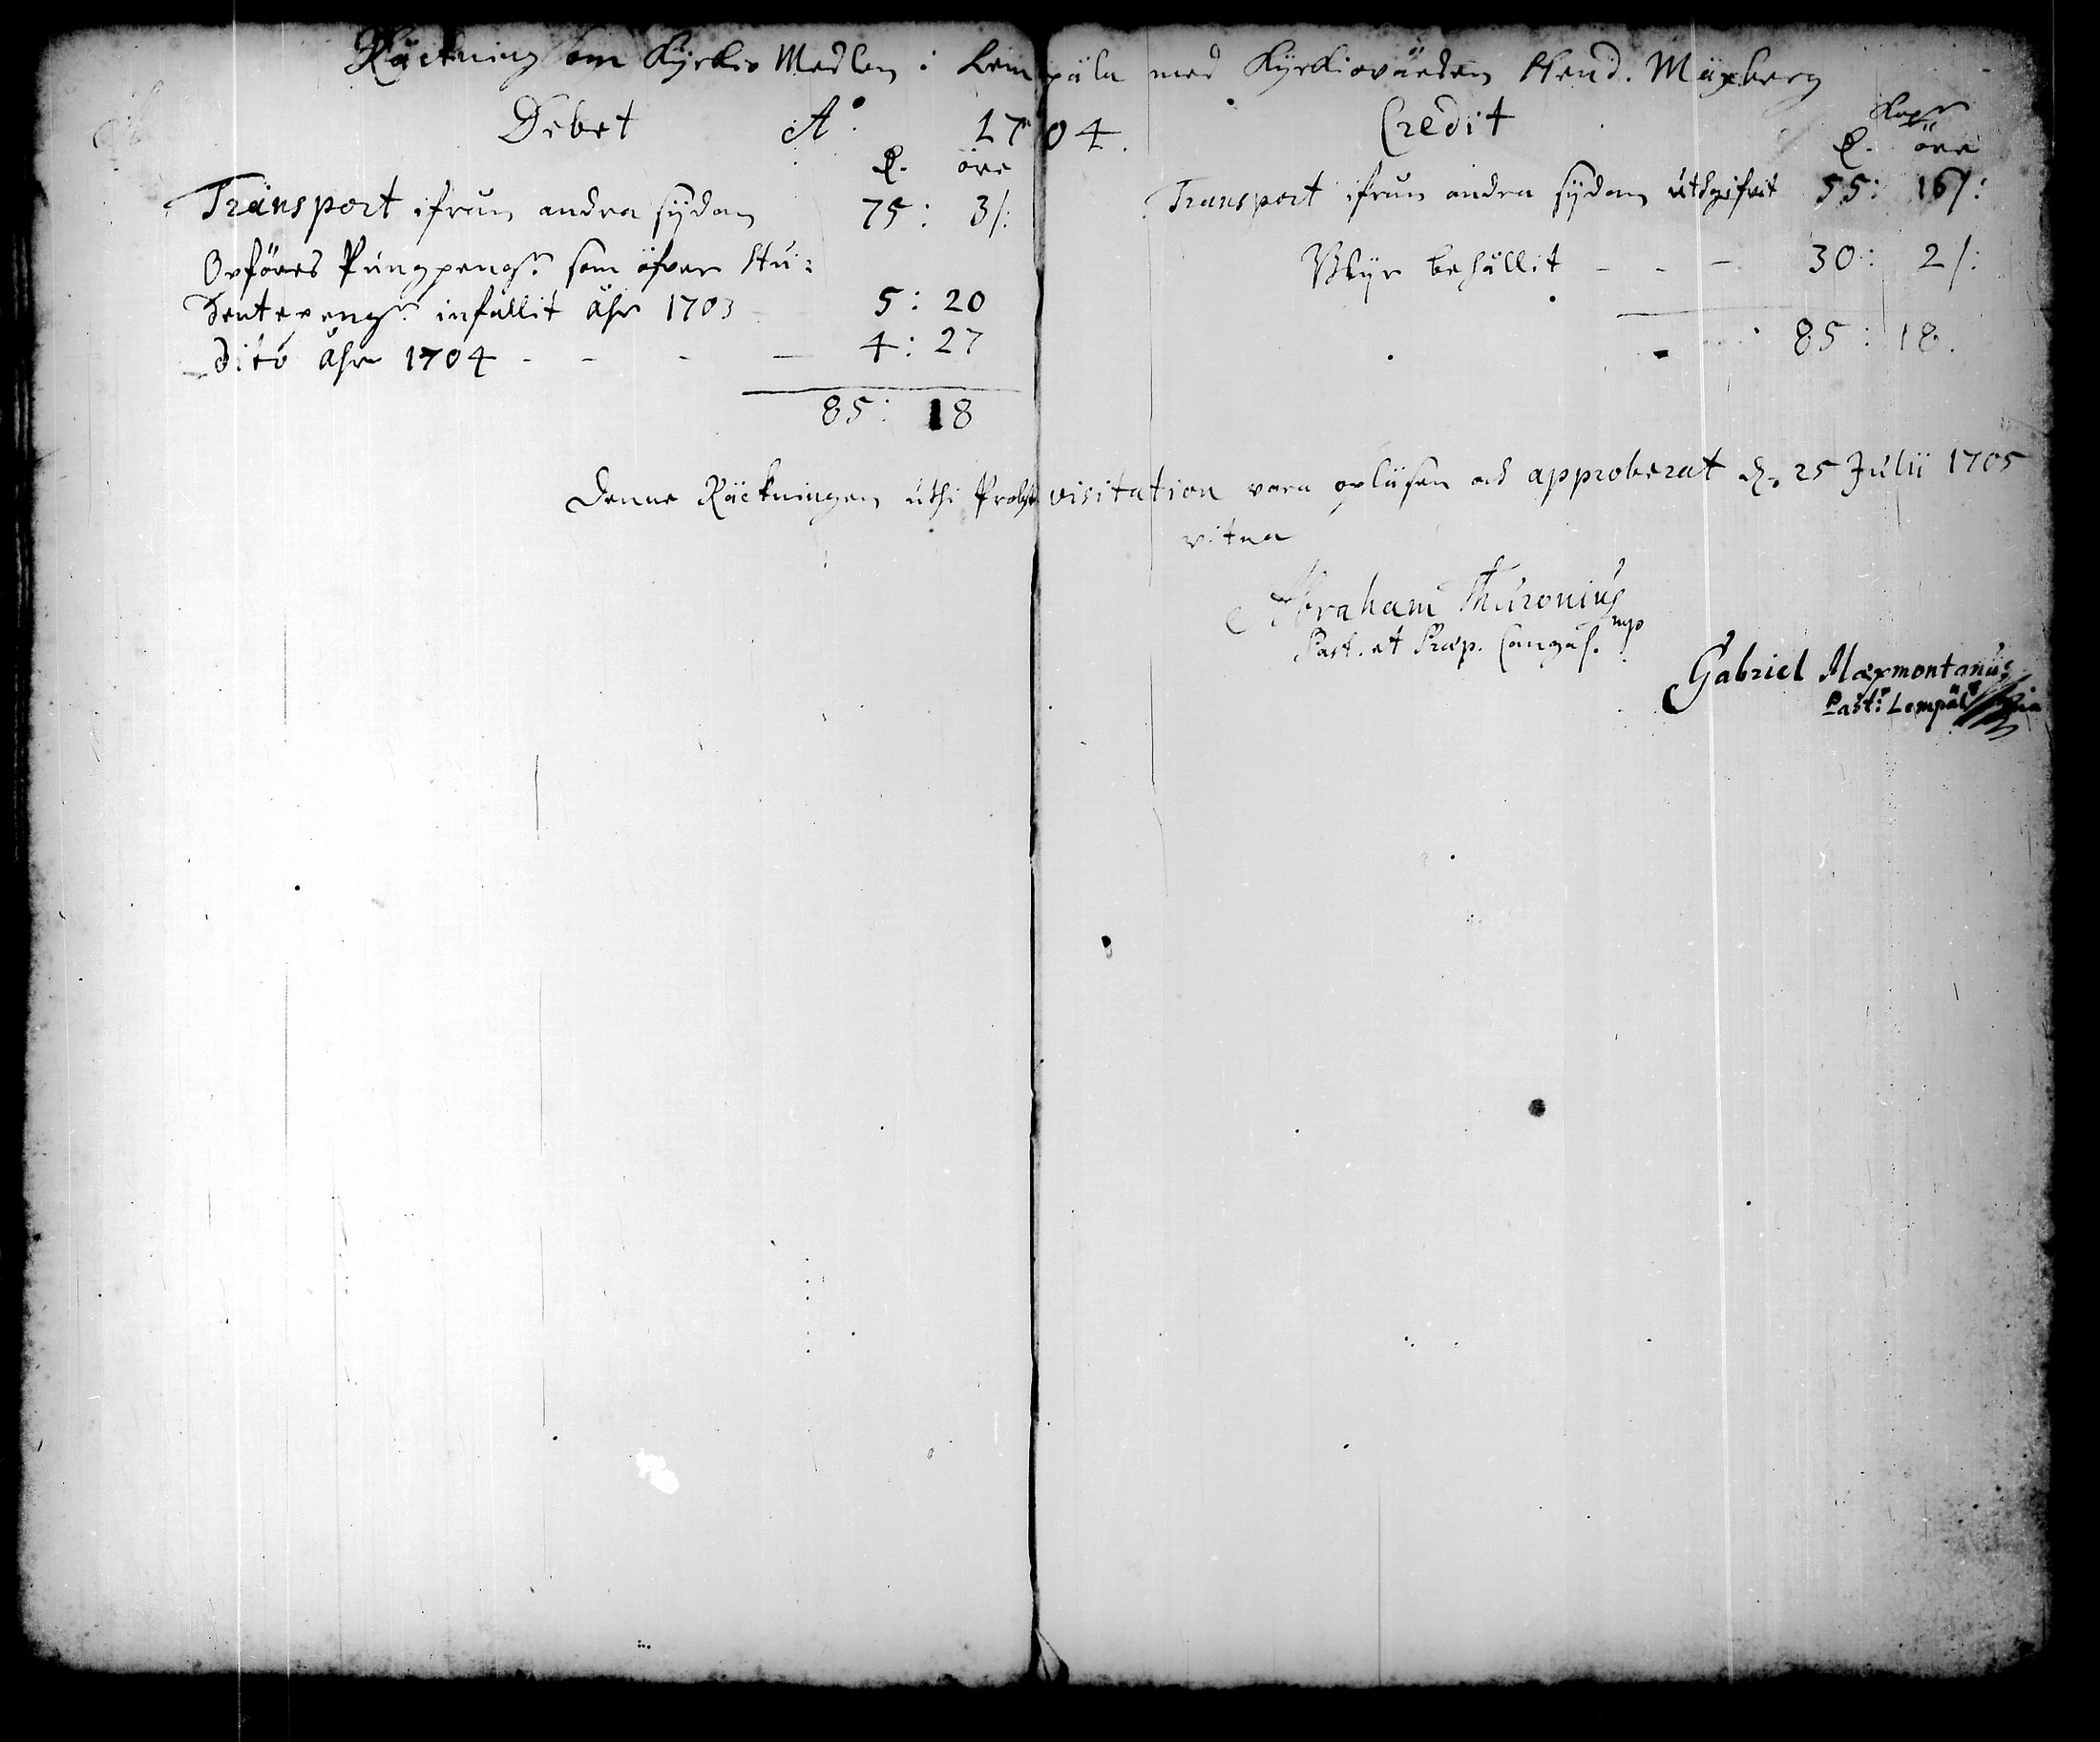 Räckning om Kyrkio Medlen i Lempäla med Kyrkiovärden Hend. Mäxberg
Debet A:o 1704. Credit
D. öre
Transport ifrån andra sijdan 75: 3/:
Opföres Pungpeng:r som öfver Stu:
dentepeng:r infallit åhr 1703 5: 20
Dito åhr 1704 - - - — 4: 27
85: 18
Kop:r
D. öre
Transport ifrån andra sijdan uthgifvit 55: 16/:
Blijr behållit - - - 30: 2/:
85: 18.
Denne Räckningen uthi Probst visitation vara opläsen och approberat d. 25 Julii 1705
vitna
Abraham Thuronius mp
Past. et Præp. Cangas.
Gabriel Mæxmontanus
Past: Lempäl